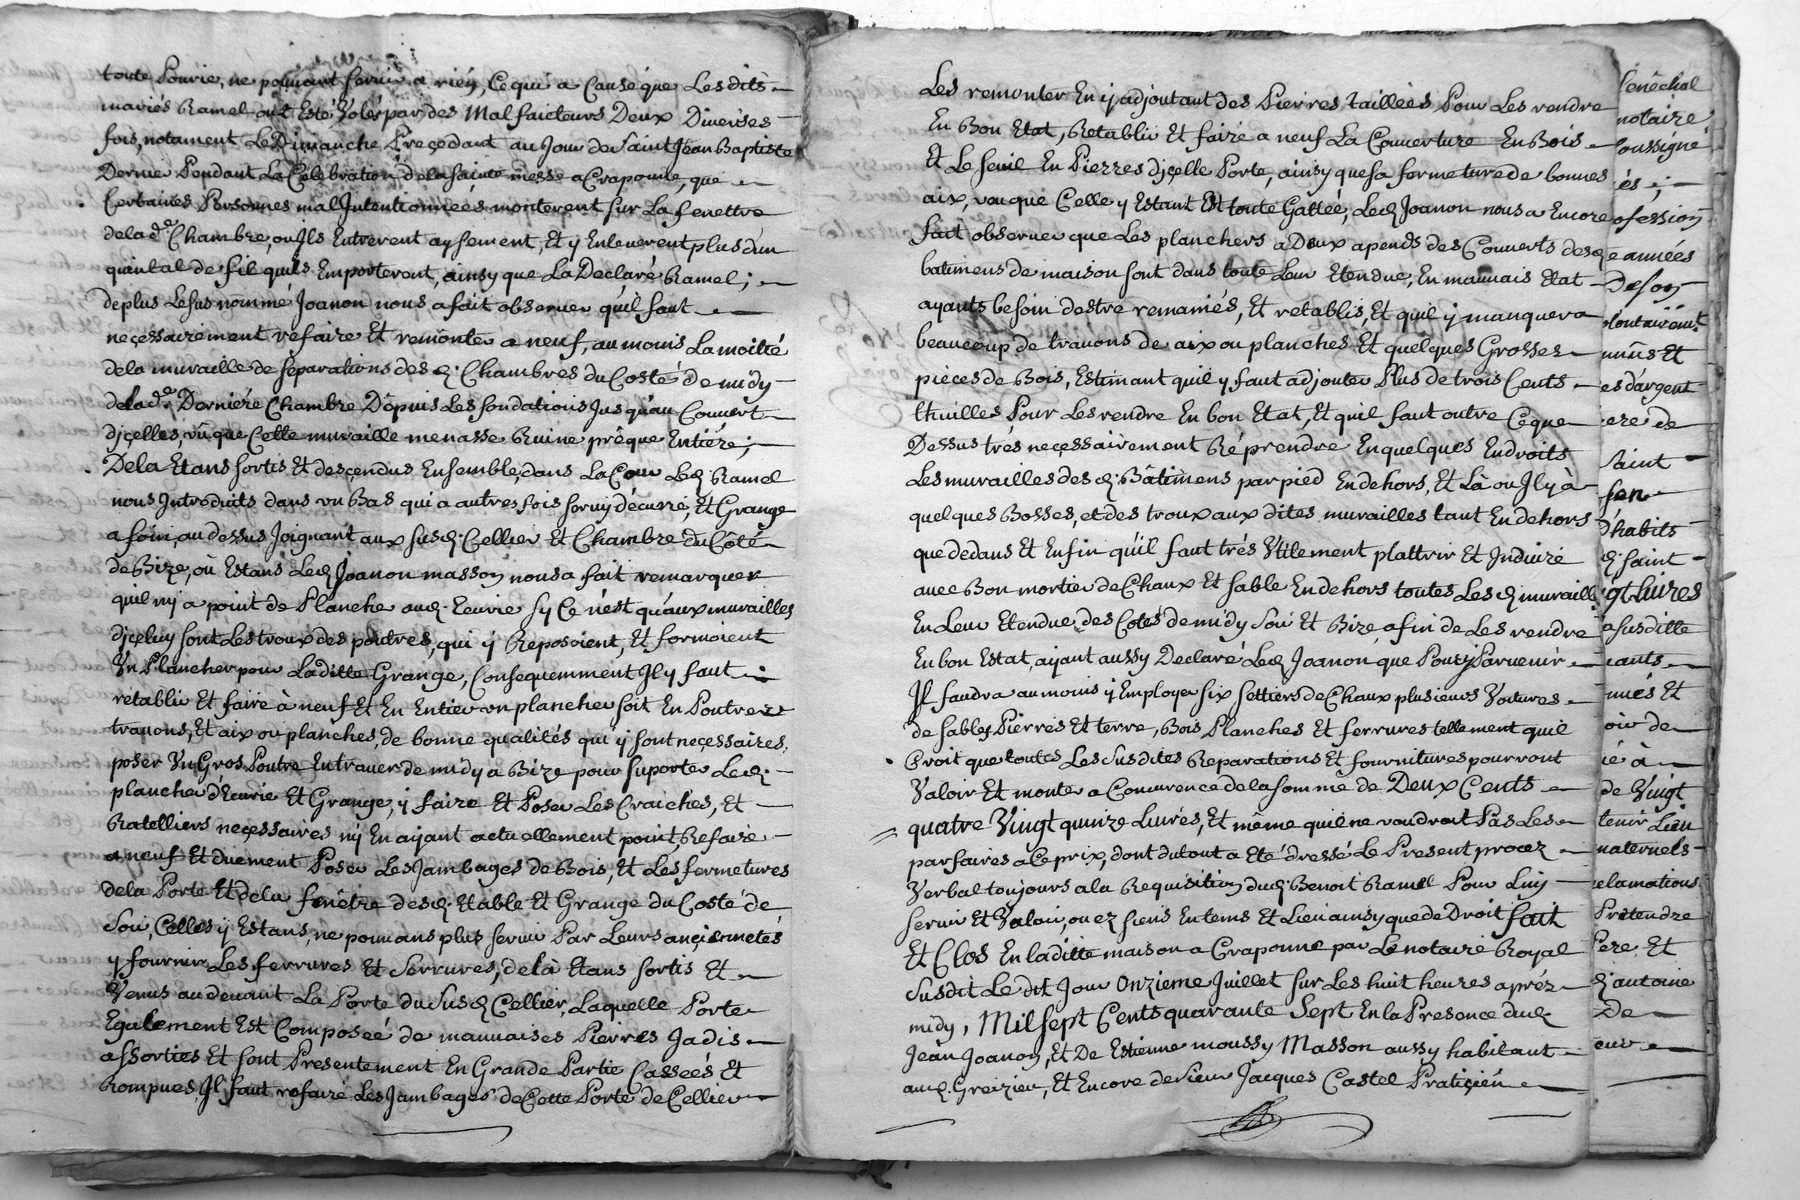 toute Pourie, ne pouvant servir a rien, Ce qui a Causé que Lesdits
mariés Ramel ont Esté Volés par des Malfaicteurs Deux Diverses
fois, notament Le Dimanche Preçedant au Jour de Saint Jean Baptiste
Dernier Pendant La Celebration de la Sainte messe a Craponne, que
Certaines Personnes mal Intentionnées monterent sur La fenettre
de la de. Chambre, ou Ils Entrerent aysement, Et y Enleverent plus d'un
quintal de fil quils Emporteront, ainsy que La Declaré Ramel;
de plus Le susnommé Joanon nous a fait observer qu'il faut
neçessairement refaire Et remonter a neuf, au moins La moitié
de la muraille de separations des d. Chambres du Costé de midy
de la de. Derniére Chambre Dépuis Les fondations Jusqu'au Couvert
d'jçelles, vû que Cette muraille menasse Ruine présque Entiére;
De la Etans sortis Et desçendus Ensemble, dans La Cour Led. Ramel
nous Introduits dans vn Bas qui a autres fois servy d'écurie, Et Grange
a foin, au dessus Joignant aux susd. Cellier Et Chambre du Côté
de Bize, où Estans Led. Joanon masson nous a fait remarquer
quil ny a point de Planche aud. Ecurie sy Ce n'est qu'aux murailles
d'jçeluy sont Les troux des poutres, qui y Reposoient, Et formoient
Vn Plancher pour Laditte Grange, Consequemment Il y faut
rétablir Et faire à neuf Et En Entier vn plancher soit En Poutres
travons, Et aix ou planches, de bonne qualités qui y sont neçessaires,
poser Vn Gros Poutre En traver de midy a Bize pour suporter Led.
plancher d'Ecurie Et Grange, y faire Et Poser Les Craiches, Et
Ratelliers neçessaires n'y En ayant actuellement point Refaire
a neuf Et duement Poser Les Jambages de Bois, Et Les fermetures
de la Porte Et de la fenêtre desd. Etable Et Grange du Costé de
Soir, Celles y Estans, ne pouvans plus servir Par Leurs ançiennetés
y fournir Les ferrures Et Serrures, de là Etans sortis Et
Venus au devant La Porte du Susd Cellier, Laquelle Porte
Egalement Est Composeé de mauvaises Pierres Jadis
assorties Et sont Presentement En Grande Partie Cassées Et
Rompues, Il faut refaire Les Jambages de Cette Porte de Cellier
Les remonter En y adjoutant des Pierres taillées Pour Les rendre
En Bon Etat, Rétablir Et faire a neuf La Couverture En Bois
Et Le seuil En Pierres d'jçelle Porte, ainsy que sa fermeture de bonnes
aix, vu que Celle y Estant Est toute Gattée, Led. Joanon nous a Encore
fait observer que Les planchers a Deux apends des Couverts desd.
batimens de maison sont dans toute Leur Etendue, En mauvais Etat
ayants besoin destre remaniés, Et retablis, Et quil y manquera
beaucoup de travons de aix ou planches Et quelques Grosses
pièces de Bois, Estimant quil y faut adjouter Plus de trois Cents
thuilles Pour Les rendre En bon Etat, Et quil faut outre Ce que
Dessus trés neçessairement Réprendre En quelques Endroits
Les murailles desd. Bâtimens par pied En dehors, Et Là ou Il y à
quelques Bosses, et des troux aux dites murailles tant En dehors
que dedans Et Enfin quil faut trés Vtilement plattrir Et Induire
avec Bon mortier de Chaux Et sable En dehors toutes Lesd murailles
En Leur Etendue des Cotés de midy Soir Et Bize afin de Les rendre
En bon Estat, ayant aussy Declaré Led. Joanon que Pour y Parvenir
Il faudra au moins y Employer six settiers de Chaux plusieurs Voitures
de sables Pierres Et terre, Bois Planches Et ferrures tellement quil
Croit que toutes Les Susdites Reparations Et fournitures pourront
Valoir Et monter a Concurence de la somme de Deux Cents
quatre Vingt quinze Livres, Et même quil ne voudroit Pas Les
parfaires a Ce prix, dont du tout a Eté dressé Le Present procez
Verbal toujours a la Requisition dud. Benoit Ramel Pour Luy
Servir Et Valoir, ou ez siens En tems Et Lieu ainsy que de Droit fait
Et Clos En laditte maison a Craponne par Le notaire Royal
Susdit Le dit Jour Onzieme Juillet sur Les huit heures aprés
midy, Mil sept Cents quarante Sept En la Presence dud.
Jean Joanon, Et De Estienne moussy Masson aussy habitant
aud. Greizieu, Et Encore de Sieur Jacques Castel Pratiçien
Senéchal
notaire
soussigné
és ;
ofession
e années
De son
olontairemt
munis Et
es d'argent
ere de
Saint
son
d'habits
d. saint
gt Livres
a susditte
cants
nués Et
oir de
ié à
de Vingt
tenir Lieu
maternels
clamations
Prétendre
Pere Et
d. antoine
De